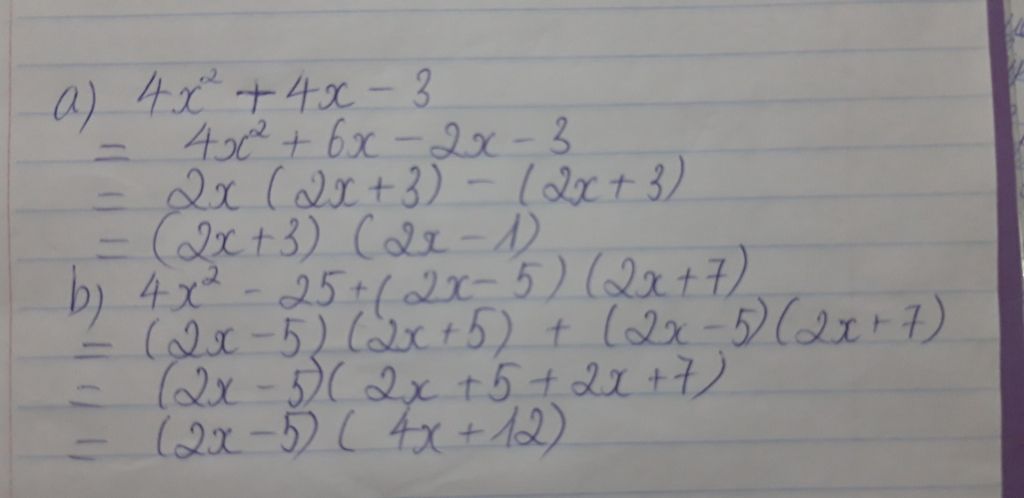 a) 4x² + 4x - 3
= 4x² + 6x - 2x - 3
= 2x (2x+3) - (2x+3)
= (2x+3) (2x-1)
b) 4x² - 25 + (2x-5) (2x+7)
= (2x-5) (2x+5) + (2x-5) (2x+7)
= (2x-5) (2x+5+2x+7)
= (2x-5) (4x+12)